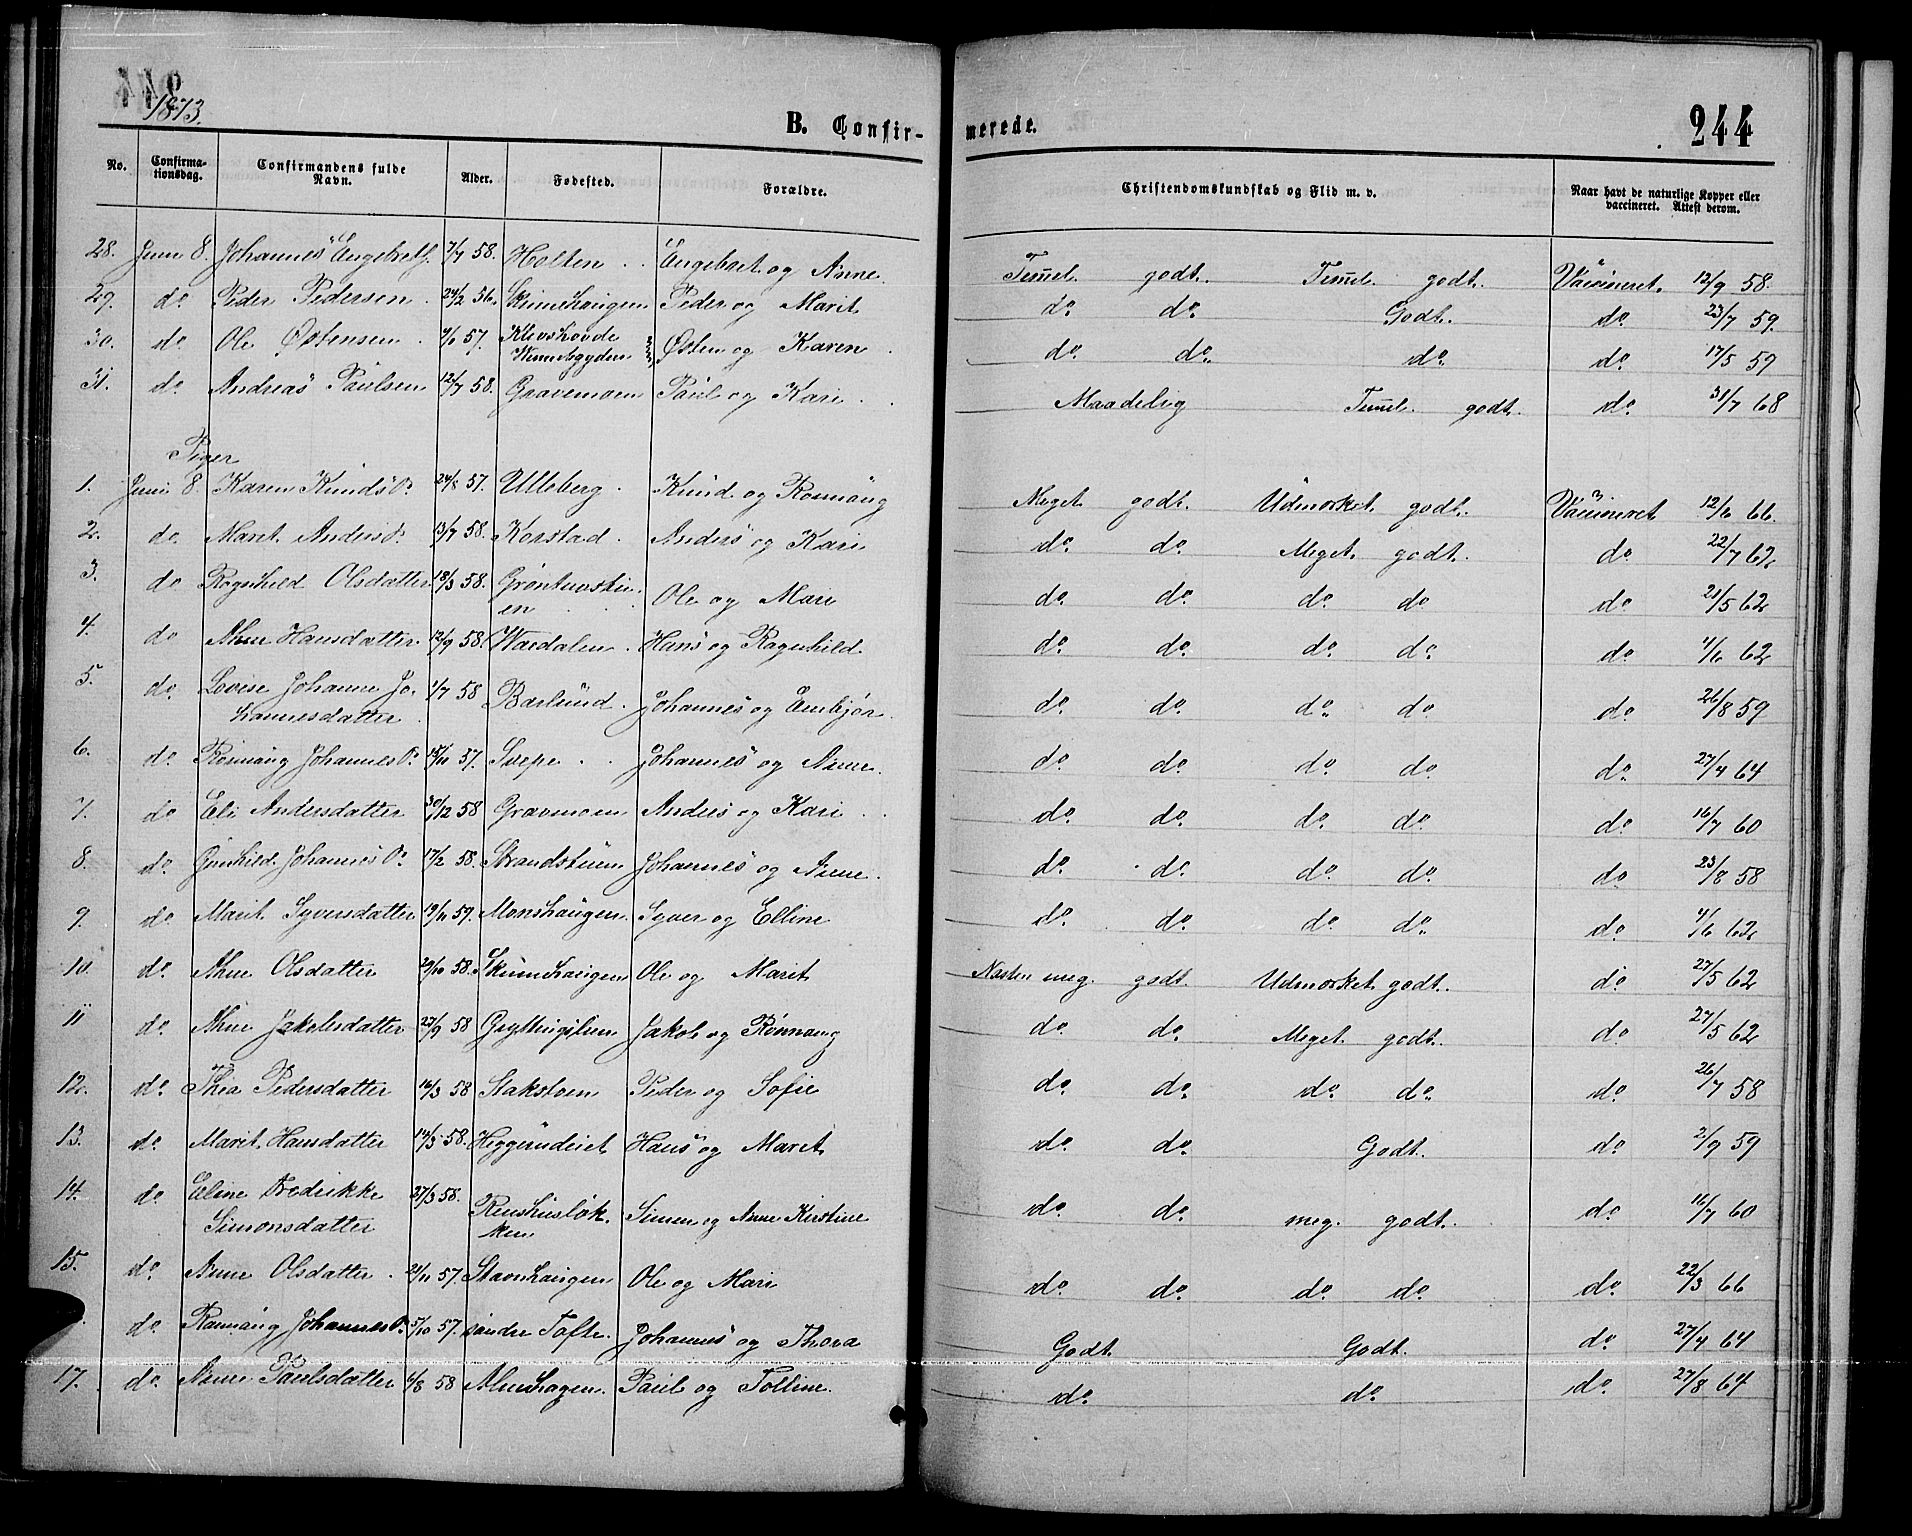 1873.
B. Confirmerede.
244
No. Confirmationsdag. Confirmandens fulde Navn. Alder. Fødested. Forældre. Christendomskundskab og Flid m. v. Naar havt de naturlige Kopper eller vaccineret. Attest derom.
28. Juni 8. Johannes Engebretf. 7/7 58. Holten Engebret og Anne Temel. godt. Temel. godt. Vaccineret. 12/9 58.
29. do. Peder Pedersen 24/2 56. Skimshaugen Peder og Marit do. do. Godt. do. 23/7 59.
30. do. Ole Østensen 57. Østen og Karen do. do. do. do. 17/5 59
31. do. Andreas Paulsen 12/7 58. Gravemoen Paul og Kari Maadelig Temel. godt. do. 31/7 68
Piger
1. Juni 8. Karen Knuds D. 24/8 57. Ulleberg Knud og Rønnaug Meget godt. Udmærket godt. Vaccineret 12/6 66.
2. do. Marit Anders D. 13/7 58. Korstad Anders og Kari do. do. Meget godt. do. 22/7 62
3. do Ragnhild Olsdatter 18/3 58. Grøntuvstuen Ole og Mari do. do. do. do do. 21/5 62
4. do Anne Hansdatter 12/9 58. Wardalen Hans og Ragnhild do. do. do. do. do. 4/6 62
5. do. Lovise Johanne Johannesdatter 1/7 58 Baslund Johannes og Embjør do. do. do. do do. 26/8 59
6. do. Rønnaug Johannes D. 15/11 57. Svepe Johannes og Anne do. do. do. do. do. 27/4 64
7. do Eli Andersdatter 30/12 58 Gravmoen Anders og Kari do. do. do. do. do. 16/7 60
8. do. Gunhild Johannes D. 17/2 58. Strandstuen Johannes og Anne do. do. do. do. do. 23/8 58
9. do. Marit Syversdatter 19/11 59. Monshaugen Syver og Elline do. do. do. do. do. 4/6 62
10. do. Anne Olsdatter 29/10 58. Skimshaugen Ole og Marit Næsten meg. godt Udmærket godt. do. 27/5 62
11 do. Anne Jakobsdatter 27/9 58 Jakob og Rønnaug do. do. Meget godt. do 27/5 62
12. do. Thea Pedersdatter 16/3 58 Stakstoen Peder og Sofie do. do. do. do. do. 26/7 58
13. do. Marit Hansdatter 14/5 58. Heggerudeiet Hans og Marit do. do. Godt. do. 2/9 59
14. do. Eline Fredrikke Simonsdatter 27/3 58. Renshusløkken Simen og Anne Kirstine do. do. meg. godt. do. 16/7 60
15. do. Anne Olsdatter 21/11 57. Stavnhaugen Ole og Mari do. do. do. do. do. 22/3 66
do. Rønnaug Johannes D. 5/10 57. søndre Tofte Johannes og Thora Godt. Godt. do. 27/4 64
17. do. Anne Paulsdatter 4/8 58 Almehagen. Paul og Tolline. do. do. do. 27/8 64